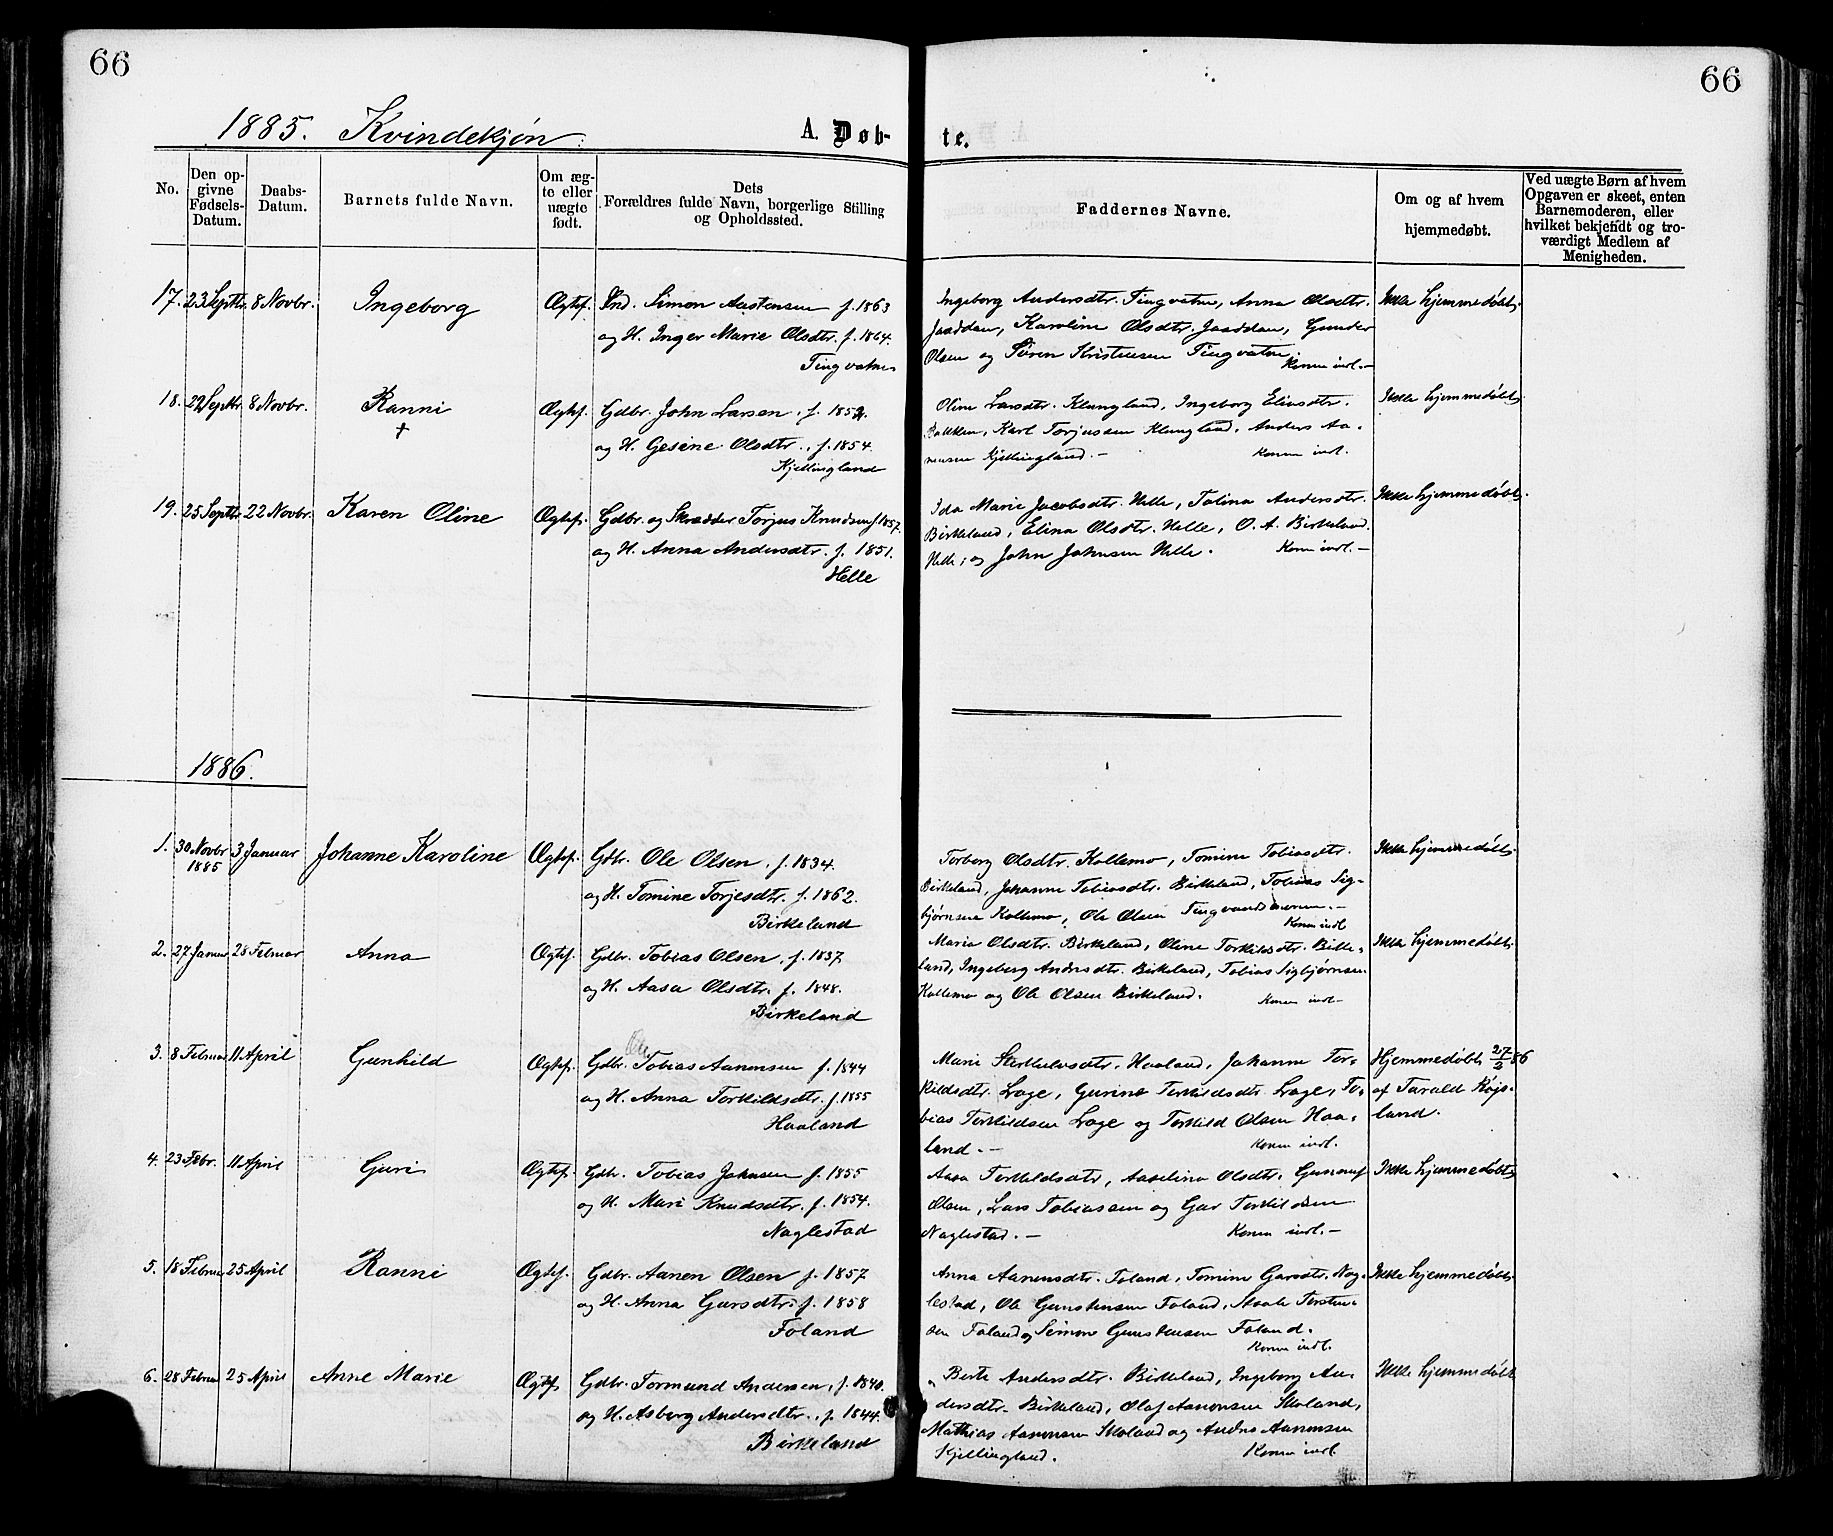 66
66
1885. Kvindekjøn.
A. Døb-
te.
No.
Den op-
givne
Fødsels-
Datum.
Daabs-
Datum.
Barnets fulde Navn.
Om æg-
te eller
uægte
født.
Dets
Forældres fulde Navn, borgerlige Stilling
og Opholdssted.
Faddernes Navne.
Om og af hvem
hjemmedøbt.
Ved uægte Børn af hvem
Opgaven er skeet, enten
Barnemoderen, eller
hvilket bekjendt og tro-
værdigt Medlem af
Menigheden.
17. 23 Septbr. 8 Novbr. Ingeborg Ægtef. Ind. Simon Aastensen f. 1863
og H. Inger Marie Olsdtr. f. 1864.
Tingvatne
Ingeborg Andersdtr. Tingvatne, Anna Olsdtr.
Jaaddan, Karoline Olsdtr. Jaaddan, Gunder
Olsen og Sören Kristensen Tingvatne.
Konen indl. -
Ikke hjemmedøbt.
18. 22 Septbr. 8 Novbr. Ranni Ægtef. Gdbr. John Larsen, f. 1852.
†
og H. Gesine Olsdtr., f. 1854.
Kjellingland
Oline Larsdtr. Klungland, Ingeborg Eliasdtr.
Bakken, Karl Torjussen Klungland, Anders Aa-
nensen Kjellingland. -
Konen indl.
Ikke hjemmedøbt.
19. 25 Septbr. 22 Novbr. Karen Oline Ægtef. Gdbr. og Skrædder Torjus Knudsen f. 1857.
og H. Anna Andersdtr. f. 1851.
Helle
Ida Marie Jacobsdtr. Helle, Talina Andersdtr.
Birkeland, Elina Olsdtr. Helle, O. A. Birkeland
Helle, og John Johnsen Helle.
Konen indl. -
Ikke hjemmedøbt.
1886.
1. 30 Novbr 3 Januar Johanne Karoline Ægtef. Gdbr. Ole Olsen, f. 1834.
1885
og H. Tomine Torjesdtr. f. 1862.
Birkeland
Torborg Olsdtr. Kollemo, Tomine Tobiasdtr.
Birkeland, Johanne Tobiasdtr. Birkeland, Tobias Sig-
bjørnsen Kollemo, Ole Olsen
Konen indl
Ikke hjemmedøbt.
2. 27 Januar 28 Februar Anna Ægtef. Gdbr. Tobias Olsen, f. 1837.
og H. Aasa Olsdtr. f. 1848.
Birkeland
Maria Olsdtr. Birkeland, Oline Torkildsdtr. Birke-
land, Ingeborg Andersdtr. Birkeland, Tobias Sigbjørnsen
Kollemo og Ole Olsen Birkeland.
Konen indl -
Ikke hjemmedøbt.
3. 8 Februar 11 April Gunhild Ægtef. Gdbr. Tobias Aanensen f. 1844
og H. Anna Torkildsdtr. f. 1855
Haaland
Marie Haaland, Johanne Tor-
kildsdtr. Lage, Gurine Torkildsdtr. Lage, To-
bias Torkildsen Lage og Torkild Olsen Haa-
land. -
Konen indl.
Hjemmedøbt 27/2 86
af Tarald Røjs-
land.
4. 23 Febr. 11 April Guri Ægtef. Gdbr. Tobias Johnsen f. 1855
og H. Mari Knudsdtr. f. 1854.
Naglestad
Aasa Torkildsdtr, Aaselina Olsdtr. Gunnuf
Olsen, Lars Tobiassen og Gar Torkildsen
Naglestad. -
Konen indl. -
Ikke hjemmedøbt
5. 18 Februar 25 April Ranni Ægtef. Gdbr. Aanen Olsen f. 1857
og H. Anna Garsdtr. f. 1858
Foland
Anna Aanensdtr. Foland, Tomine Garsdtr. Nag-
lestad, Ole Gunstensen Foland, Staale Torsten-
sen Foland og Simon Gunstensen Foland.
Konen indl.
Ikke hjemmedøbt.
6. 28 Februar 25 April Anne Marie Ægtef Gdbr. Tormund Andersen, f. 1840.
og H. Asberg Andersdtr., f. 1844.
Birkeland
Berte Andersdtr. Birkeland, Ingeborg An-
dersdtr. Birkeland, Olaf Aanensen Skoland,
Mathias Aanensen Skoland og Anders Aanensen
Kjellingland.
Konen indl.
Ikke hjemmedøbt